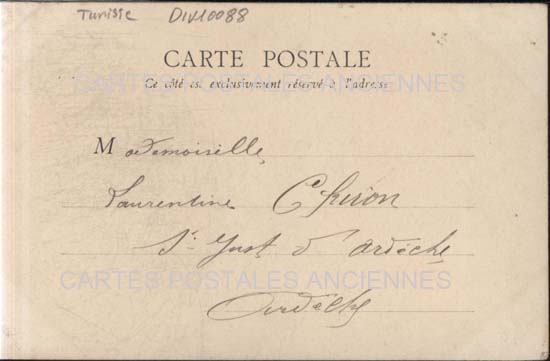 Tunisie DIV10088
CARTE POSTALE
Ce côté est exclusivement réservé à l'adresse
CARTES POSTALES ANCIENNES
Mademoiselle,
Laurentine Chiron
St Just d'ardèche
CARTES POSTALES ANCIENNES
Ardèche